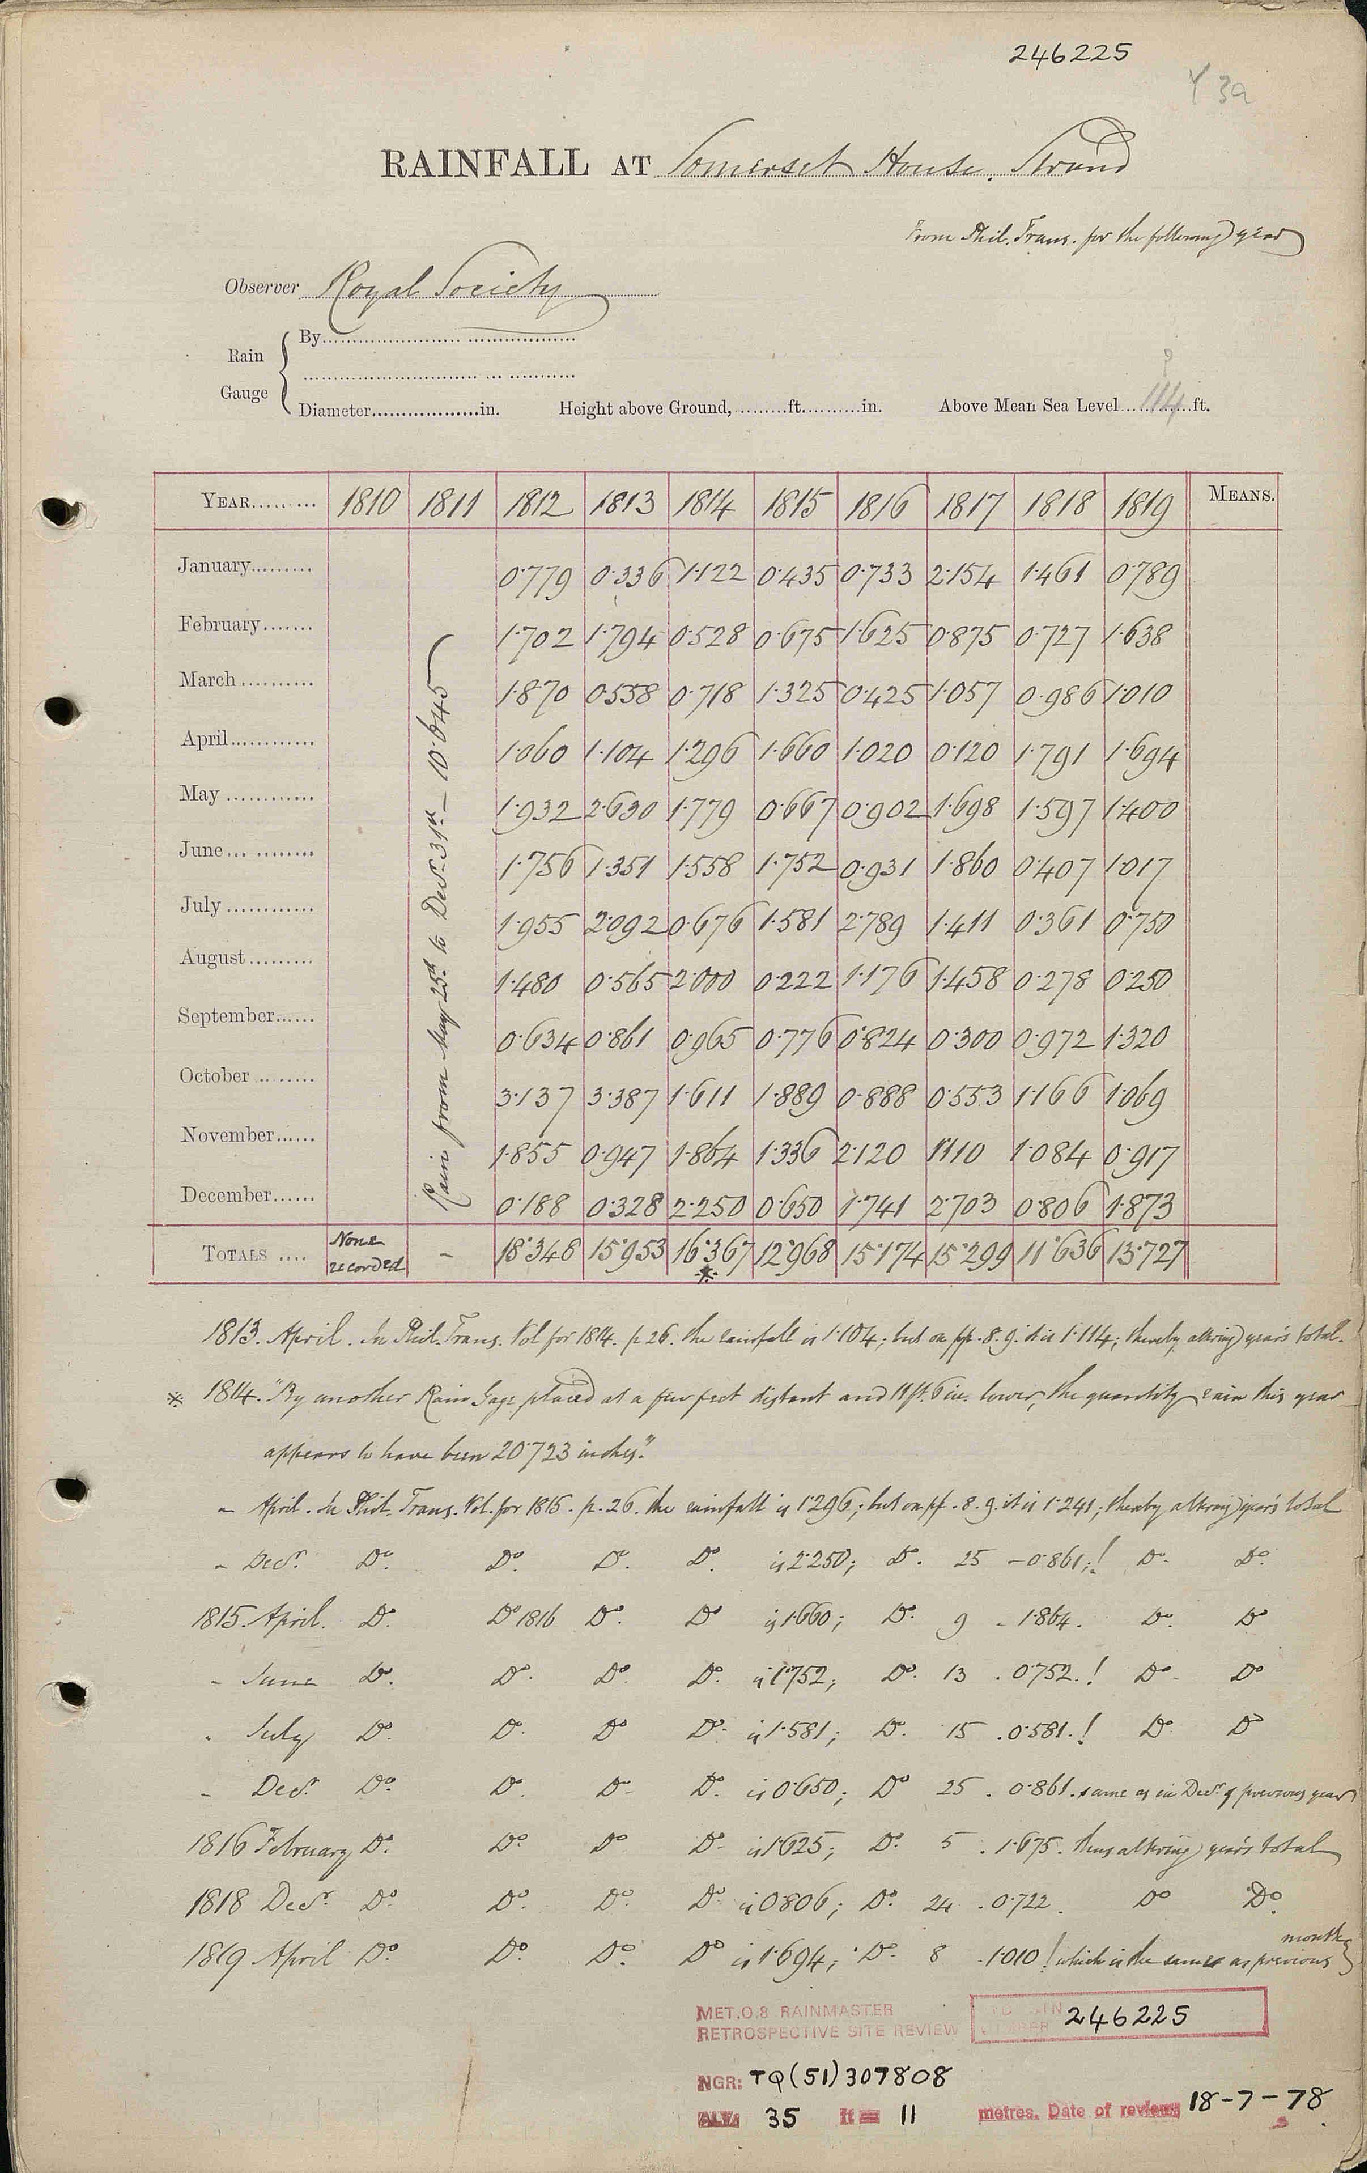 246225
Y 3a
RAINFALL AT Somerset House, Strand
From Phil. Trans. for the following year
Observer Royal Society
Rain Gauge { By
Diameter in. Height above Ground, ft. in. Above Mean Sea Level 114 ft.
?
YEAR 1810 1811 1812 1813 1814 1815 1816 1817 1818 1819 MEANS.
Rain from May 25th to Decr. 31st – 10.645
January 0.779 0.336 1.122 0.435 0.733 2.154 1.461 0.789
February 1.702 1.794 0.528 0.675 1.625 0.875 0.727 1.638
March 1.870 0.558 0.718 1.325 0.425 1.057 0.986 1.010
April 1.060 1.104 1.296 1.660 1.020 0.120 1.791 1.694
May 1.932 2.630 1.779 0.667 0.902 1.698 1.597 1.400
June 1.756 1.351 1.558 1.752 0.931 1.860 0.407 1.017
July 1.955 2.092 0.676 1.581 2.789 1.411 0.361 0.750
August 1.480 0.565 2.000 0.222 1.176 1.458 0.278 0.250
September 0.634 0.861 0.965 0.776 0.824 0.300 0.972 1.320
October 3.137 3.387 1.611 1.889 0.888 0.553 1.166 1.069
November 1.855 0.947 1.864 1.336 2.120 1.110 1.084 0.917
December 0.188 0.328 2.250 0.650 1.741 2.703 0.806 1.873
TOTALS None recorded – 18.348 15.953 16.367 * 12.968 15.174 15.299 11.636 13.727
1813. April. In Phil. Trans. Vol for 1814. p. 26. the rainfall is 1.104; but on pp. 8. 9. it is 1.114; thereby altering year's total.
* 1814. "By another Rain Gage placed at a few feet distant and 11 ft. 6 in. lower, the quantity rain this year
appears to have been 20.723 inches."
" April. In Phil. Trans. Vol. for 1815. p. 26. the rainfall is 1.296; but on pp. 8. 9. it is 1.241; thereby altering year's total
" Decr. Do. Do. Do. Do. is 2.250; Do. 25 – 0.861;! Do. Do.
1815 April. Do. Do 1816 Do. Do is 1.660; Do. 9 – 1.864. Do. Do
" June Do. Do. Do. Do. is 1.752; Do. 13 . 0.752.! Do. Do
" July Do. Do. Do Do. is 1.581; Do. 15 . 0.581.! Do. Do
" Decr. Do. Do. Do. Do. is 0.650; Do 25 . 0.861. same as in Decr. of previous year
1816 February Do. Do. Do Do. is 1.625; Do. 5 . 1.675. thus altering year's total
1818 Decr. Do. Do. Do. Do. is 0.806; Do. 24 . 0.722. Do Do.
1819 April Do. Do. Do. Do is 1.694; Do. 8 . 1.010! which is the same as previous month
MET.O.8 RAINMASTER
RETROSPECTIVE SITE REVIEW
246225
NGR: TQ(51)307808
ALT. 35 ft = 11 metres. Date of review 18-7-78